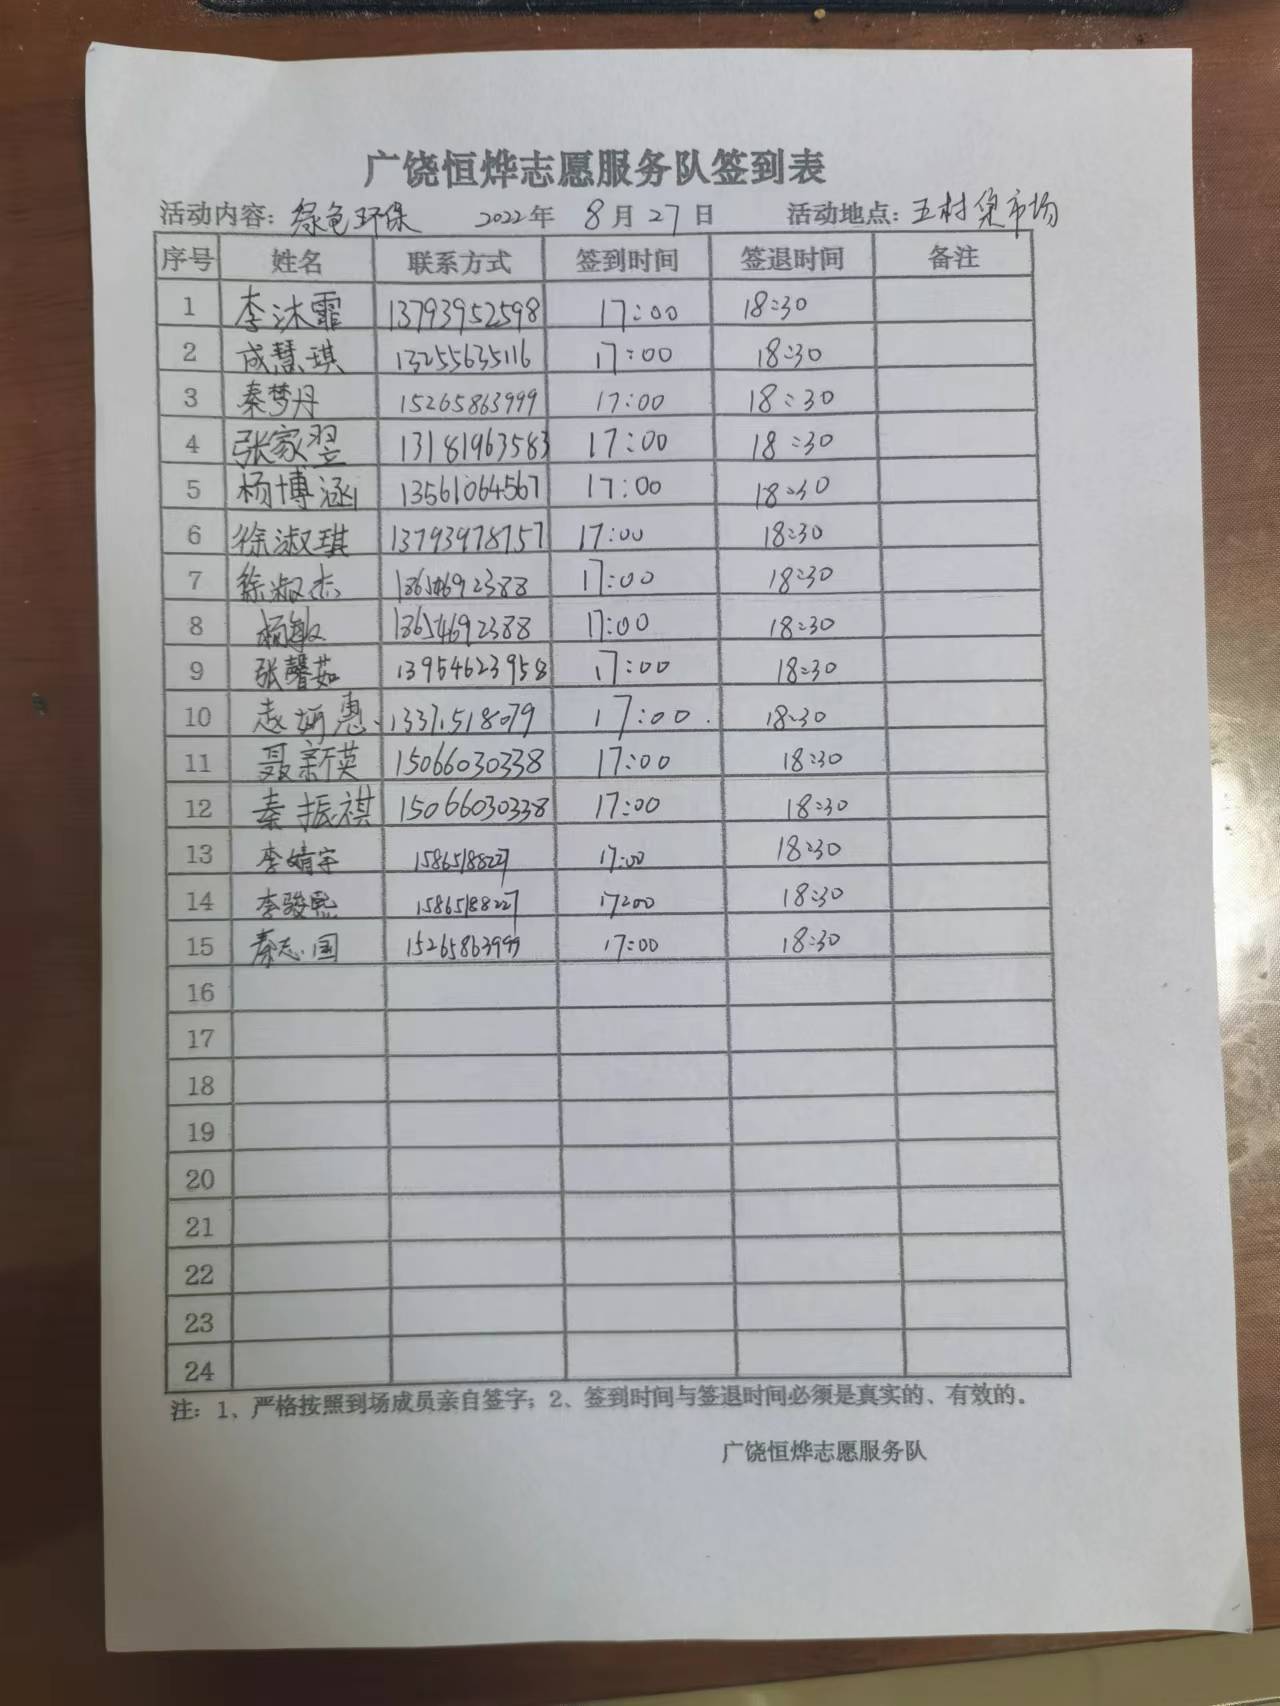 广饶恒烨志愿服务队签到表
活动内容：绿色环保 2022年 8月27日 活动地点：五村集市场
序号 姓名 联系方式 签到时间 签退时间 备注
1 李沐霏 13793952598 17:00 18:30
2 成慧琪 13255635116 17:00 18:30
3 秦梦丹 15265863999 17:00 18:30
4 张家翌 13181963583 17:00 18:30
5 杨博涵 13561064567 17:00 18:30
6 徐淑琪 13793978757 17:00 18:30
7 徐淑杰 18654692388 17:00 18:30
8 杨敏 18654692388 17:00 18:30
9 张馨茹 13954623958 17:00 18:30
10 赵妍惠 13371518079 17:00 18:30
11 聂新英 15066030338 17:00 18:30
12 秦振祺 15066030338 17:00 18:30
13 李婧宇 15865188227 17:00 18:30
14 李骏熙 15865188227 17:00 18:30
15 秦志国 15265863999 17:00 18:30
16
17
18
19
20
21
22
23
24
注：1、严格按照到场成员亲自签字；2、签到时间与签退时间必须是真实的、有效的。
广饶恒烨志愿服务队